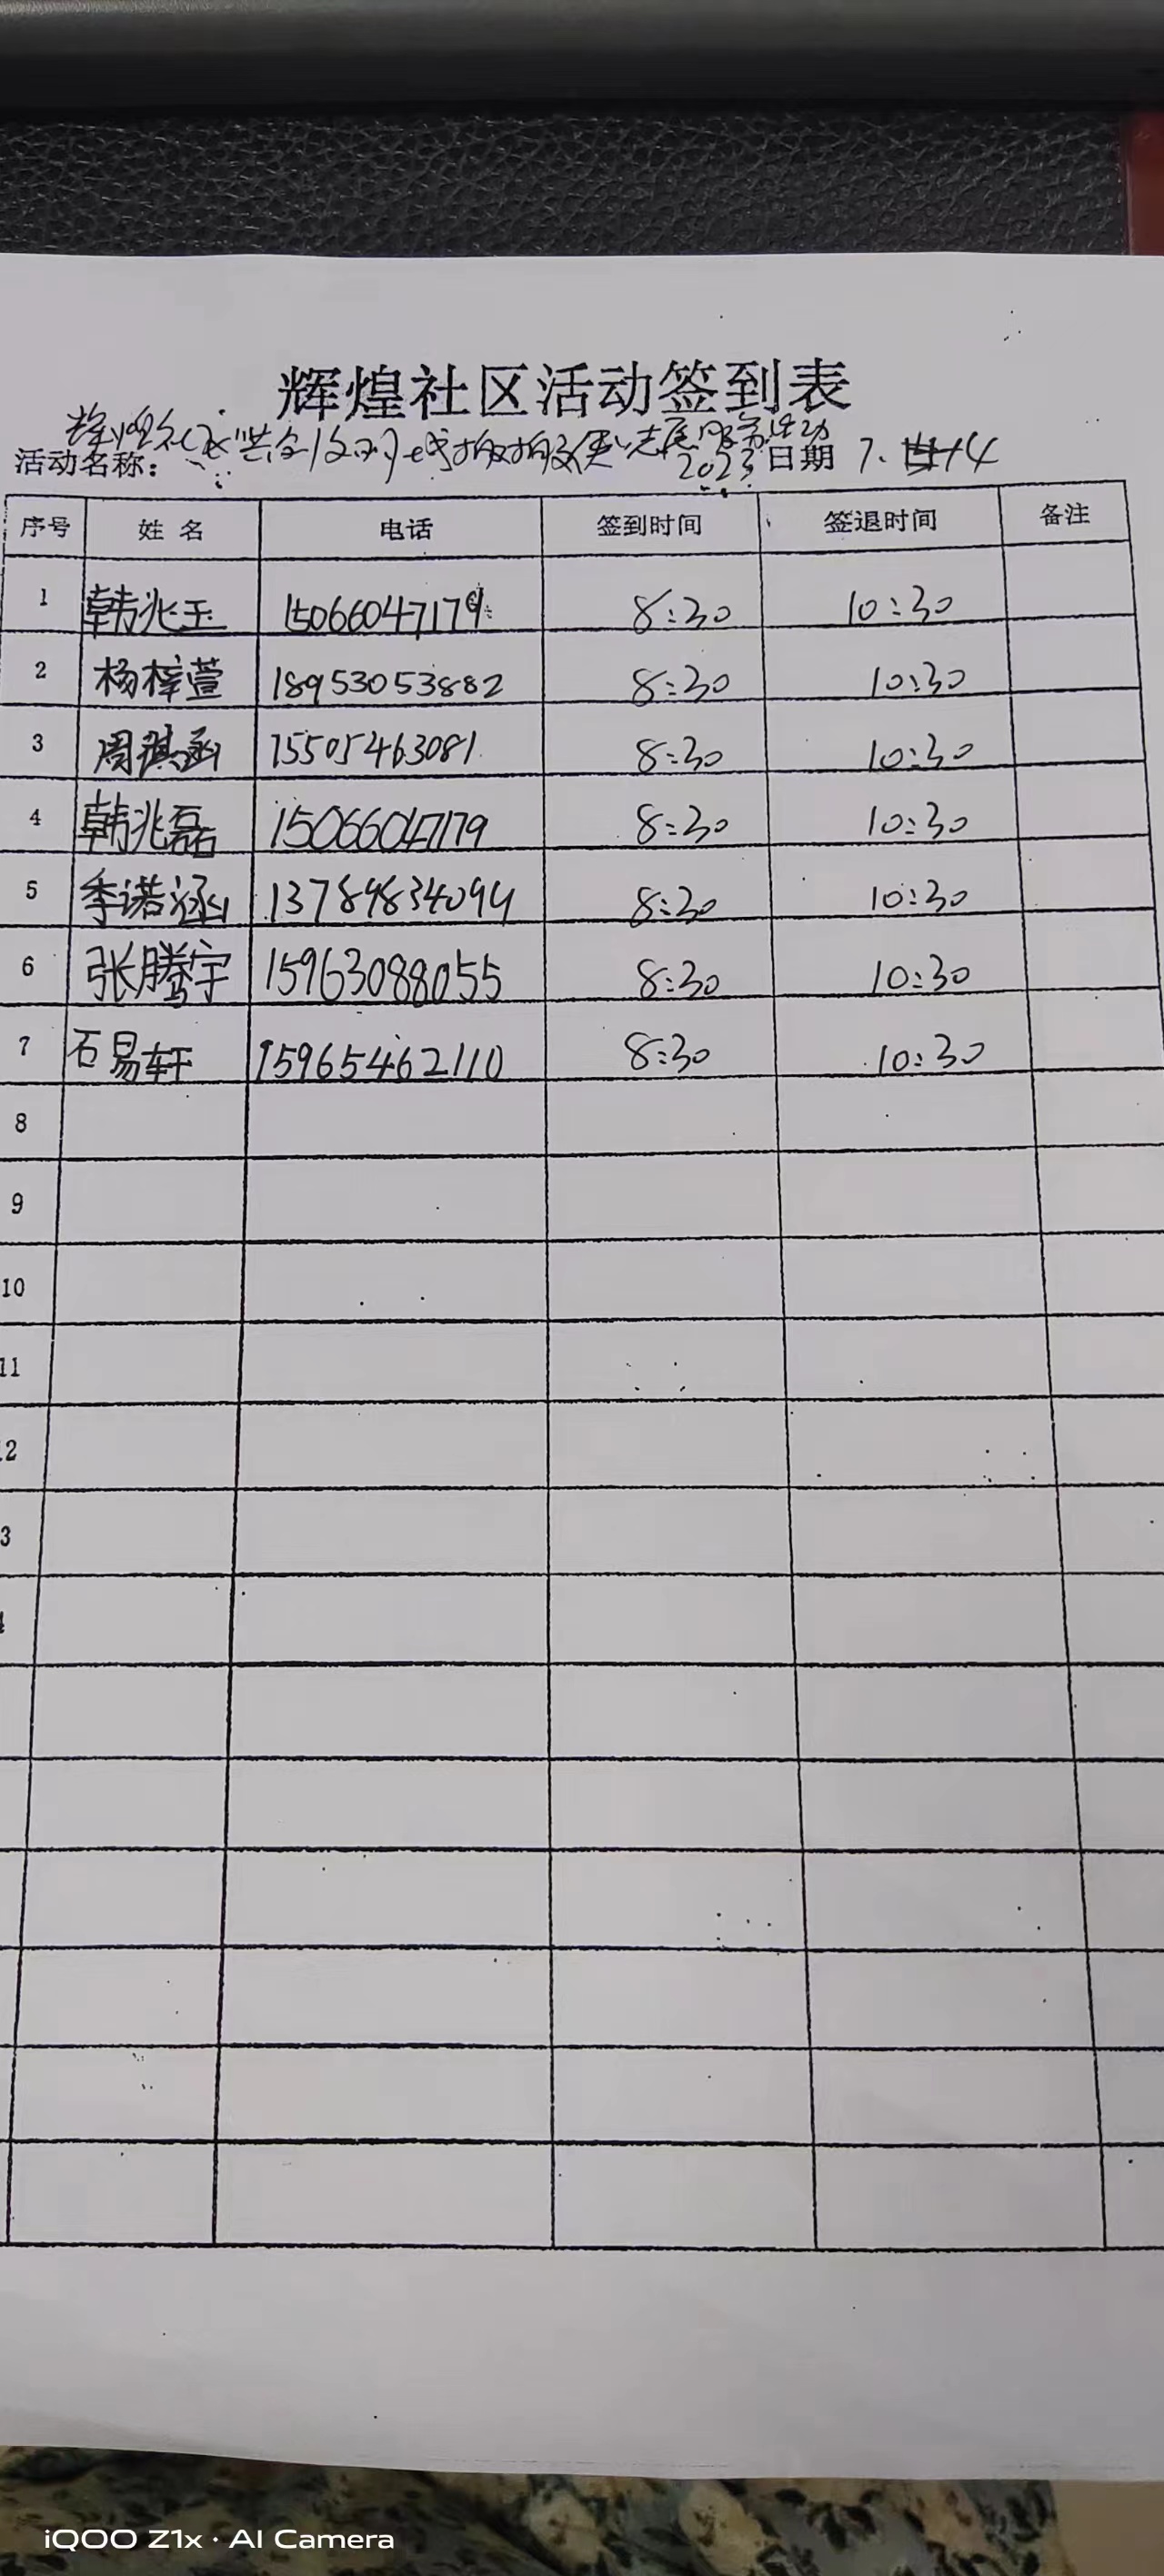 辉煌社区活动签到表
辉煌社区 志愿服务活动
活动名称: 2023 日期 7. 14
序号 姓名 电话 签到时间 签退时间 备注
1 韩兆玉 15066047179 8:30 10:30
2 杨梓萱 18953053882 8:30 10:30
3 周祺函 15505463081 8:30 10:30
4 韩兆磊 15066047179 8:30 10:30
5 季诺涵 13789834094 8:30 10:30
6 张腾宇 15963088055 8:30 10:30
7 石易轩 15965462110 8:30 10:30
8
9
10
11
2
3
4
iQOO Z1x · AI Camera